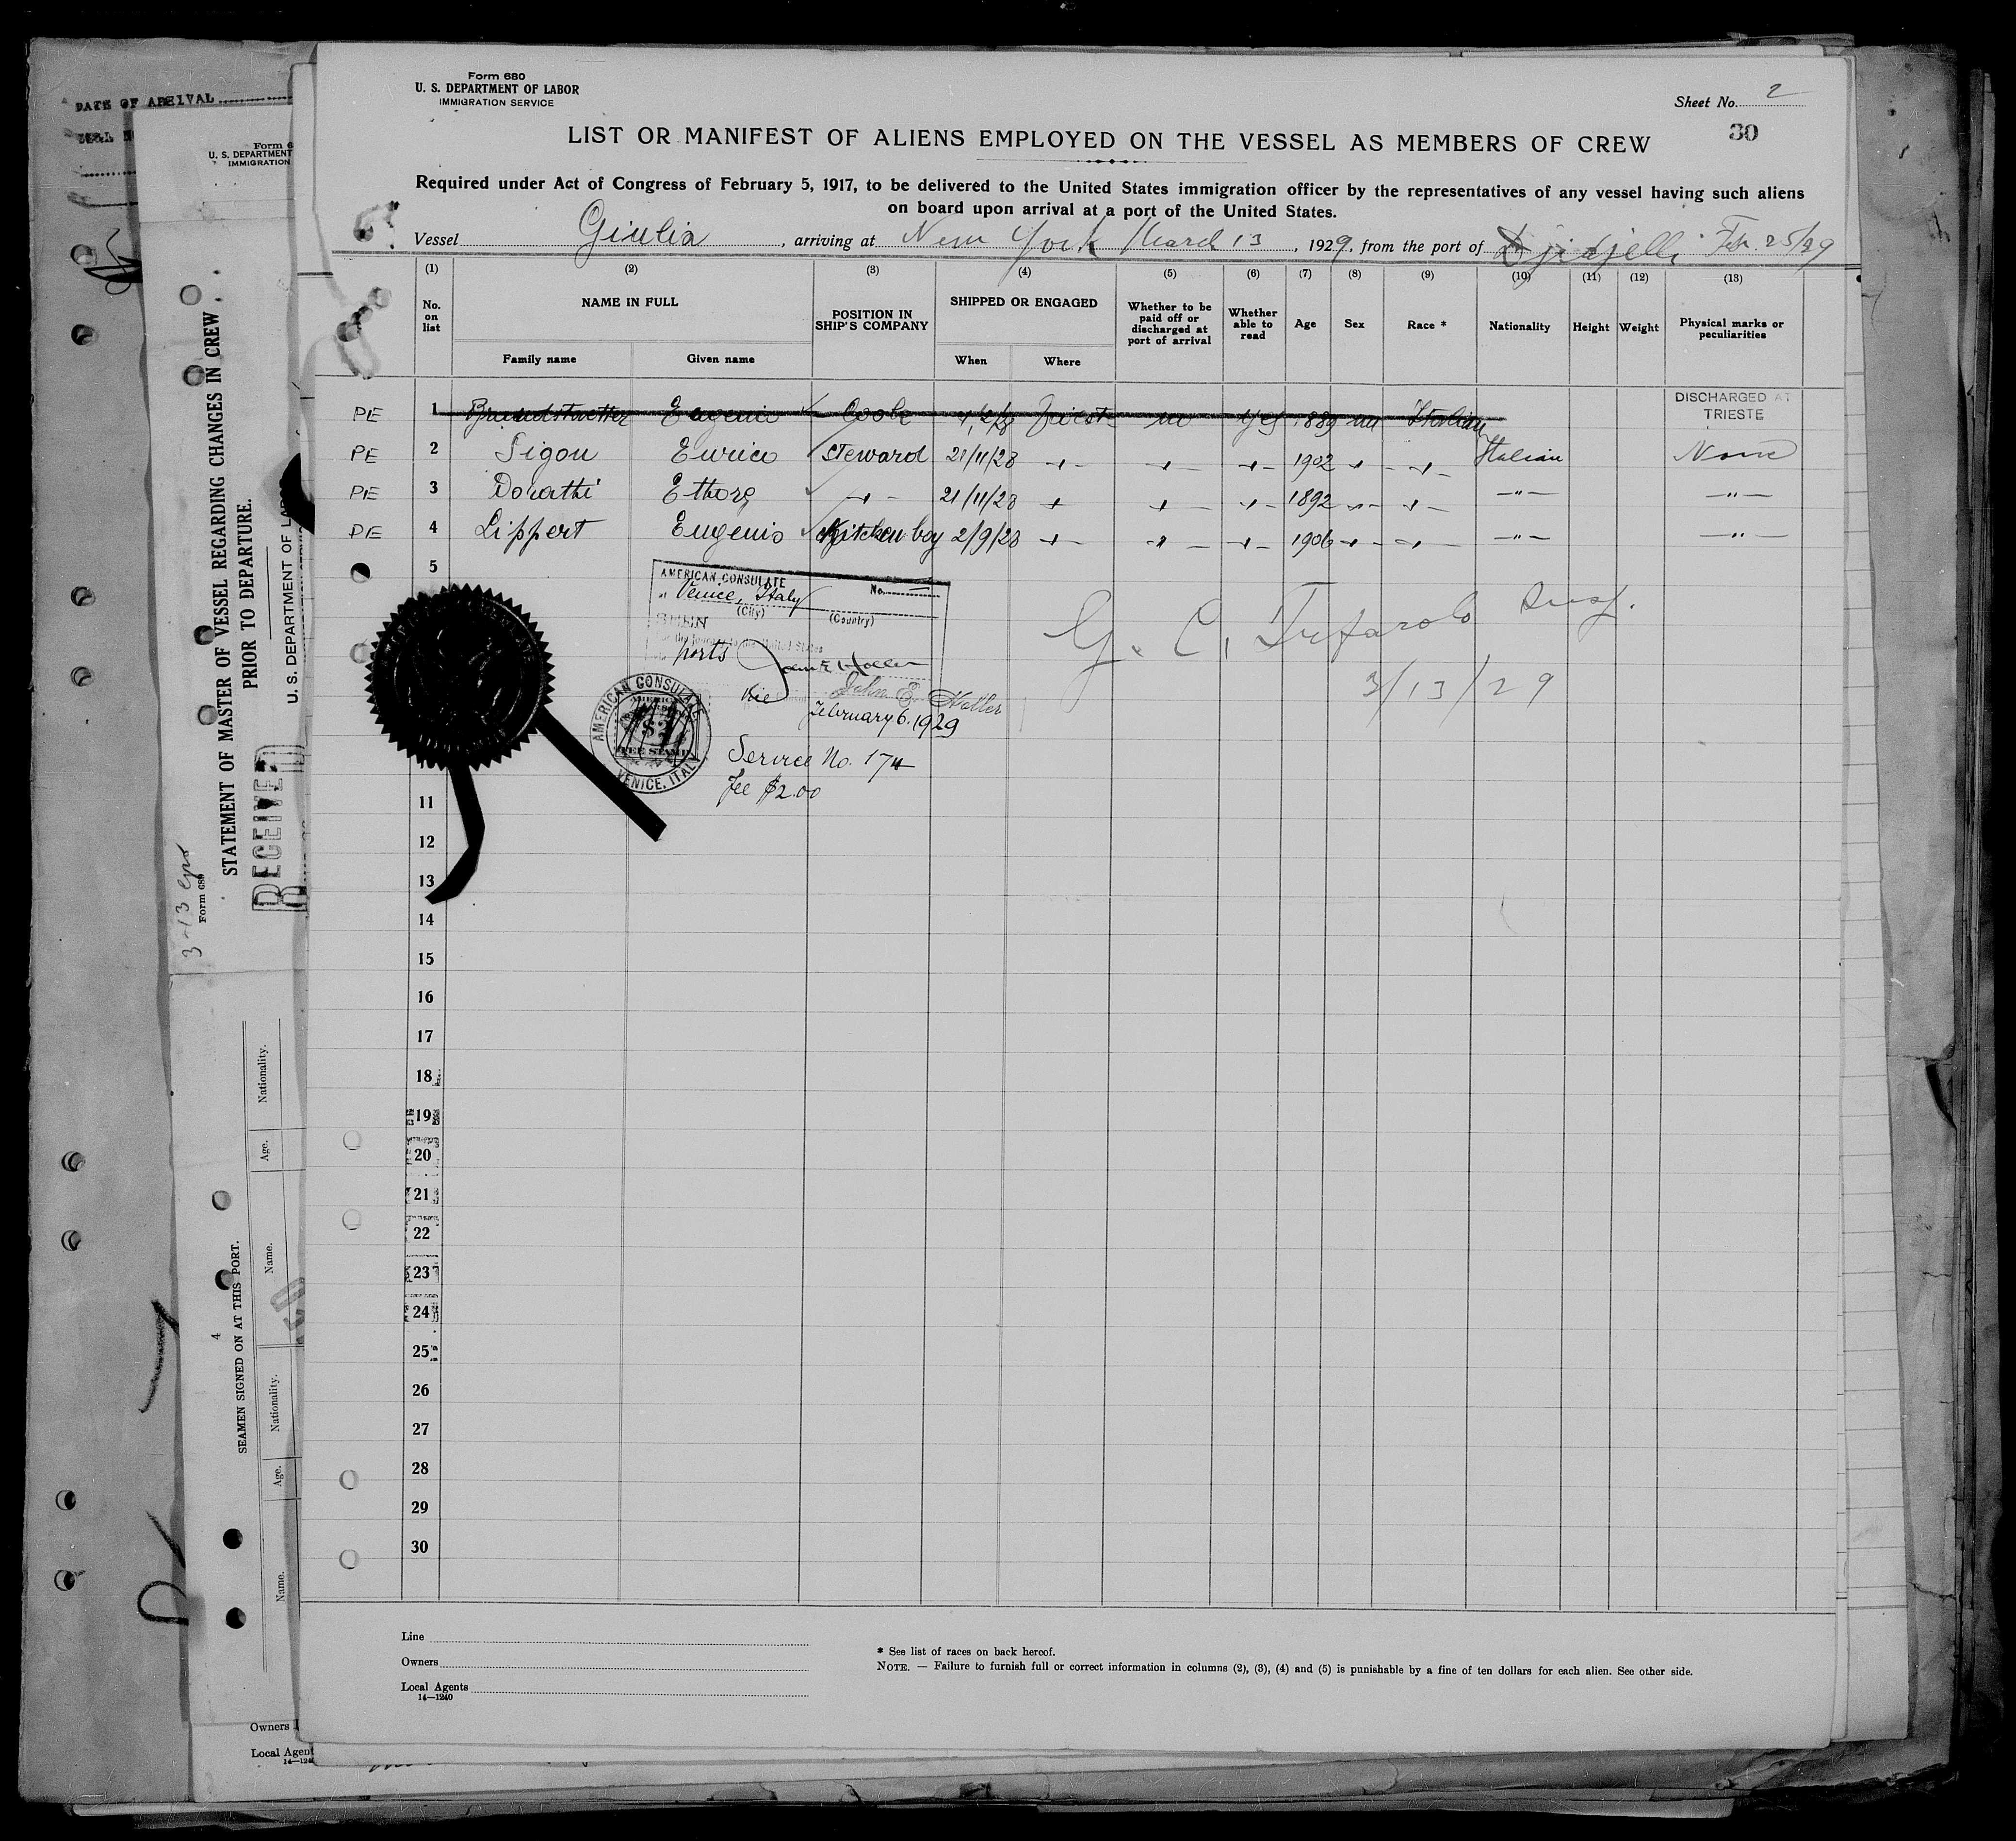 DATE OF ARRIVAL
Form 680
U. S. DEPARTMENT OF LABOR
IMMIGRATION SERVICE
Sheet No. 2
30
LIST OR MANIFEST OF ALIENS EMPLOYED ON THE VESSEL AS MEMBERS OF CREW
Required under Act of Congress of February 5, 1917, to be delivered to the United States immigration officer by the representatives of any vessel having such aliens
on board upon arrival at a port of the United States.
Vessel Giulia, arriving at New York March 13, 1929, from the port of Djidjelli Feb. 25/29
(1) (2) (3) (4) (5) (6) (7) (8) (9) (10) (11) (12) (13)
No. on list NAME IN FULL POSITION IN SHIP'S COMPANY SHIPPED OR ENGAGED Whether to be paid off or discharged at port of arrival Whether able to read Age Sex Race * Nationality Height Weight Physical marks or peculiarities
Family name Given name When Where
PE 1 Eugenio Trieste no yes 1889 m Italian DISCHARGED AT TRIESTE
PE 2 Sigon Enrico Steward 21/11/28 -"- -"- -"- 1902 -"- -"- Italian None
PE 3 Dorathi -"- 21/11/28 -"- -"- -"- 1892 -"- -"- -"- -"-
PE 4 Lippert Eugenio Kitchen boy 2/9/28 -"- -"- -"- 1906 -"- -"- -"- -"-
5
AMERICAN CONSULATE No.
at Venice, Italy
(City) (Country)
SEEN
ports
John E. Holler
February 6. 1929
AMERICAN CONSULATE
FEE STAMP
VENICE, ITALY
Service No. 174
Fee $2.00
G. C. Tufarolo Insp.
3/13/29
11
12
13
14
15
16
17
18
19
20
21
22
23
24
25
26
27
28
29
30
Line
Owners
Local Agents
14—1240
* See list of races on back hereof.
NOTE. — Failure to furnish full or correct information in columns (2), (3), (4) and (5) is punishable by a fine of ten dollars for each alien. See other side.
Form 6
U. S. DEPARTMENT
IMMIGRATION
STATEMENT OF MASTER OF VESSEL REGARDING CHANGES IN CREW
PRIOR TO DEPARTURE.
U. S. DEPARTMENT OF LABOR
RECEIVED
3-13
SEAMEN SIGNED ON AT THIS PORT.
4
Name. Age. Nationality. Name. Age. Nationality.
Owners
Local Agent